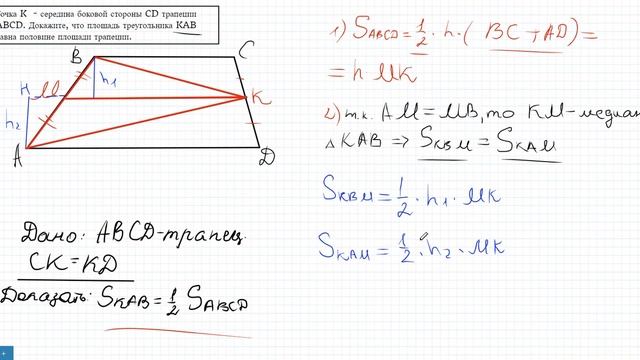 очка K - середина боковой стороны CD трапеции
ABCD. Докажите, что площадь треугольника KAB
авна половине площади трапеции.
B
C
H
M
h₁
K
h₂
A
D
Дано: ABCD-трапец.
CK=KD
Доказать: S_KAB = 1/2 S_ABCD
1) S_ABCD = 1/2 · h · (BC + AD) =
= h MK
2) т.к. AM=MB, то KM-медиан
△ KAB ⇒ S_KBM = S_KAM
S_KBM = 1/2 · h₁ · MK
S_KAM = 1/2 · h₂ · MK